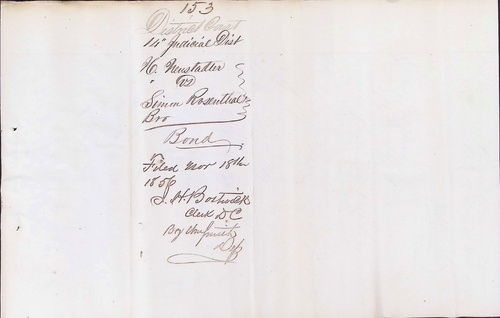 153
District Court
14" Judicial Dist
H. Neustadter
" vs
Simon Rosenthal &
Bro
Bond
Filed Nov 18th
1856
J. H. Bostwick
Clerk D C
By Wm Smith
Dep